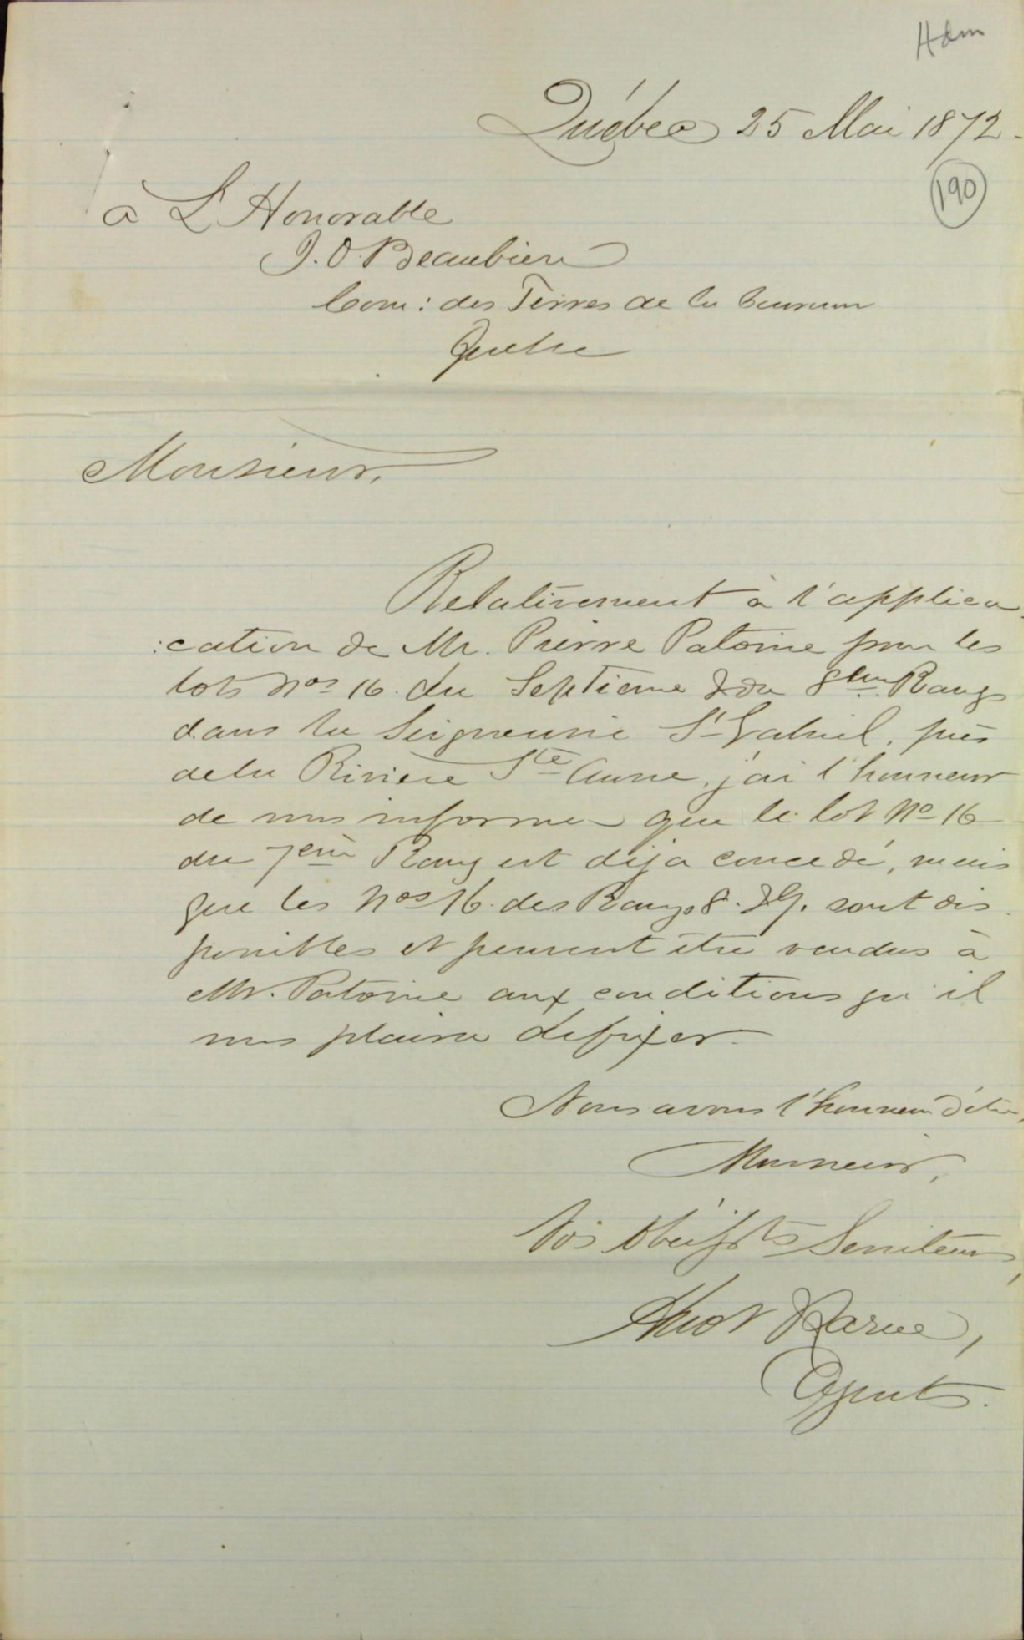 Adm
Québec 25 Mai 1872.
190
à L'Honorable
J. O. Beaubien
Com: des Terres de la Couronne
Québec
Monsieur,
Relativement à l'applica
:cation de Mr. Pierre Patoine pour les
lots Nos 16 du Septième & du 8ème Rangs
dans la Seigneurie St Gabriel, près
de la Rivière Ste Anne, j'ai l'honneur
de vous informer que le lot No 16
du 7ème Rang est déja concedé, mais
que les Nos 16 des Rangs 8. & 9. sont dis
ponibles et peuvent être vendus à
Mr. Patoine aux conditions qu'il
vous plaira de fixer.
Nous avons l'honneur d'être,
Monsieur,
Vos Obéists Serviteurs,
Huot & Larue,
Agents.